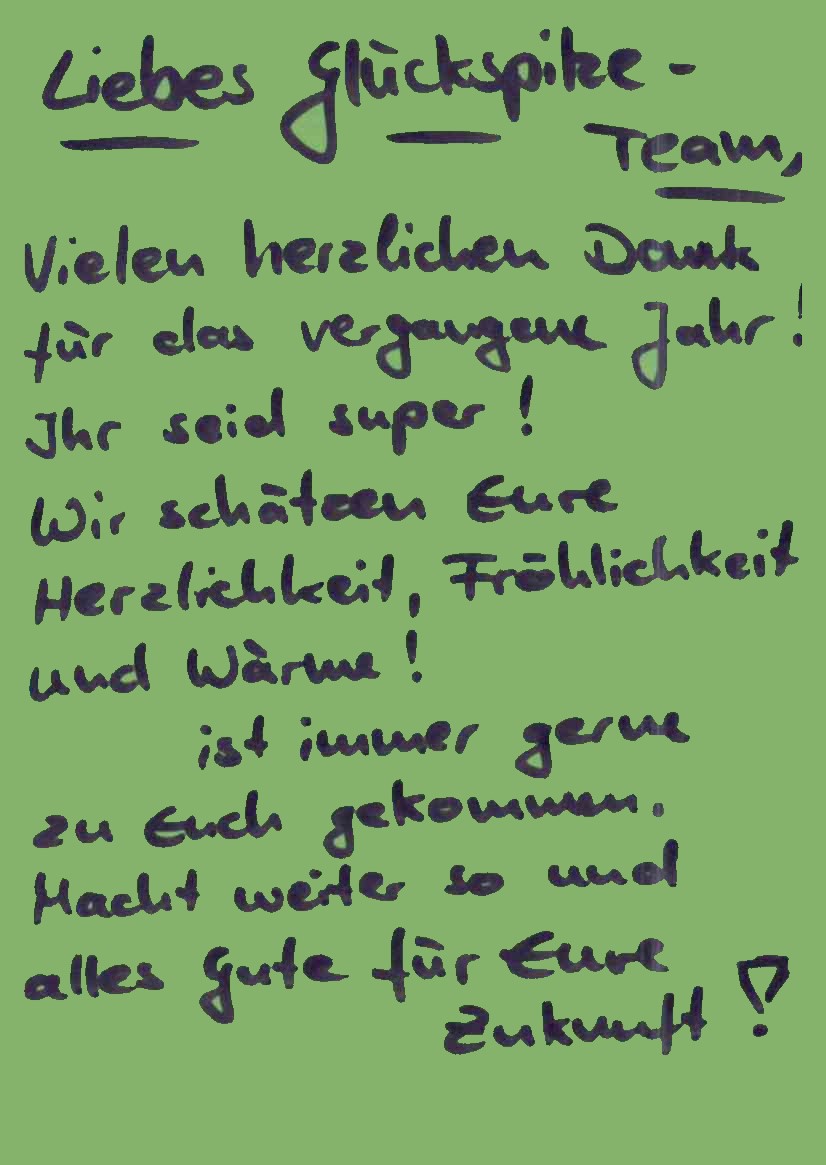 Liebes Glückspilze-
Team,
Vielen herzlichen Dank
für das vergangene Jahr!
Ihr seid super!
Wir schätzen Eure
Herzlichkeit, Fröhlichkeit
und Wärme!
ist immer gerne
zu Euch gekommen.
Macht weiter so und
alles Gute für Eure
Zukunft!